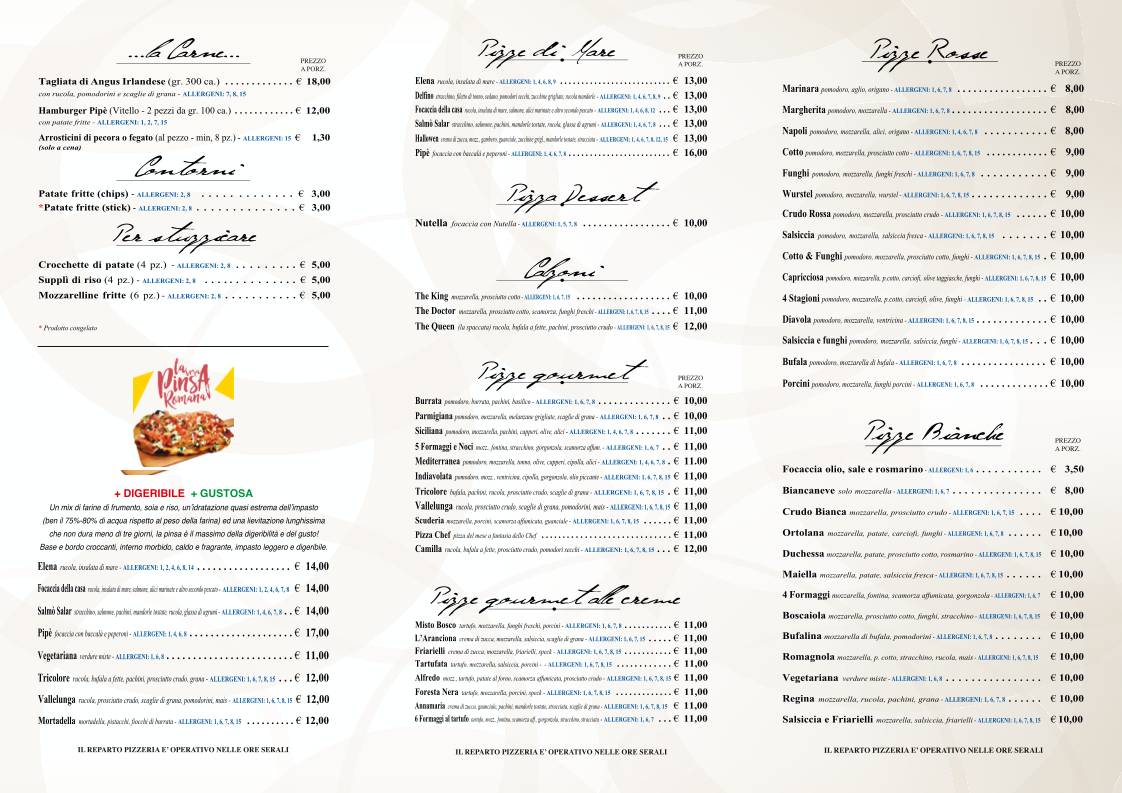 ...la Carne...
PREZZO
A PORZ.
Tagliata di Angus Irlandese (gr. 300 ca.) . . . . . . . . . . . € 18,00
con rucola, pomodorini e scaglie di grana - ALLERGENI: 7, 8, 15
Hamburger Pipè (Vitello - 2 pezzi da gr. 100 ca.) . . . . . . . . . . € 12,00
con patate fritte - ALLERGENI: 1, 2, 7, 15
Arrosticini di pecora o fegato (al pezzo - min, 8 pz.) - ALLERGENI: 15 € 1,30
(solo a cena)
Contorni
Patate fritte (chips) - ALLERGENI: 2, 8 . . . . . . . . . . . . € 3,00
*Patate fritte (stick) - ALLERGENI: 2, 8 . . . . . . . . . . . . € 3,00
Per stuzzicare
Crocchette di patate (4 pz.) - ALLERGENI: 2, 8 . . . . . . . . . € 5,00
Supplì di riso (4 pz.) - ALLERGENI: 2, 8 . . . . . . . . . . . . € 5,00
Mozzarelline fritte (6 pz.) - ALLERGENI: 2, 8 . . . . . . . . . . € 5,00
* Prodotto congelato
la vera
PinsA
Romana
+ DIGERIBILE + GUSTOSA
Un mix di farine di frumento, soia e riso, un'idratazione quasi estrema dell'impasto
(ben il 75%-80% di acqua rispetto al peso della farina) ed una lievitazione lunghissima
che non dura meno di tre giorni, la pinsa è il massimo della digeribilità e del gusto!
Base e bordo croccanti, interno morbido, caldo e fragrante, impasto leggero e digeribile.
Elena rucola, insalata di mare - ALLERGENI: 1, 2, 4, 6, 8, 14 . . . . . . . . . . € 14,00
Focaccia della casa rucola, insalata di mare, salmone, alici marinate e altro secondo pescato - ALLERGENI: 1, 2, 4, 6, 7, 8 € 14,00
Salmò Salar stracchino, salmone, pachini, mandorle tostate, rucola, glassa di agrumi - ALLERGENI: 1, 4, 6, 7, 8 . . € 14,00
Pipè focaccia con baccalà e peperoni - ALLERGENI: 1, 4, 6, 8 . . . . . . . . . . € 17,00
Vegetariana verdure miste - ALLERGENI: 1, 6, 8 . . . . . . . . . . € 11,00
Tricolore rucola, bufala a fette, pachini, prosciutto crudo, grana - ALLERGENI: 1, 6, 7, 8, 15 . . . . € 12,00
Vallelunga rucola, prosciutto crudo, scaglie di grana, pomodorini, mais - ALLERGENI: 1, 6, 7, 8, 15 . . . € 12,00
Mortadella mortadella, pistacchi, fiocchi di burrata - ALLERGENI: 1, 6, 7, 8, 15 . . . . . . . . . . € 12,00
IL REPARTO PIZZERIA E' OPERATIVO NELLE ORE SERALI
Pizze di Mare
PREZZO
A PORZ.
Elena rucola, insalata di mare - ALLERGENI: 1, 4, 6, 8, 9 . . . . . . . . . . € 13,00
Delfino stracchino, filetto di tonno, sedano, pomodori secchi, zucchine grigliate, rucola mandorle - ALLERGENI: 1, 4, 6, 7, 8, 9 . . € 13,00
Focaccia della casa rucola, insalata di mare, salmone, alici marinate e altro secondo pescato - ALLERGENI: 1, 4, 6, 8, 12 . . . . € 13,00
Salmò Salar stracchino, salmone, pachini, mandorle tostate, rucola, glassa di agrumi - ALLERGENI: 1, 4, 6, 7, 8 . . . . € 13,00
Hallowen crema di zucca, mozz., gambero, guanciale, zucchine grigl., mandorle tostate, stracchino - ALLERGENI: 1, 6, 7, 8, 12, 15 € 13,00
Pipè focaccia con baccalà e peperoni - ALLERGENI: 1, 4, 6, 7, 8 . . . . . . . . . . € 16,00
Pizza Dessert
Nutella focaccia con Nutella - ALLERGENI: 1, 5, 7, 8 . . . . . . . . . . € 10,00
Calzoni
The King mozzarella, prosciutto cotto - ALLERGENI: 1, 6, 7, 15 . . . . . . . . . . € 10,00
The Doctor mozzarella, prosciutto cotto, scamorza, funghi freschi - ALLERGENI: 1, 6, 7, 8, 15 . . . . € 11,00
The Queen (la spaccata) rucola, bufala a fette, pachini, prosciutto crudo - ALLERGENI: 1, 6, 7, 8, 15 € 12,00
Pizze gourmet
PREZZO
A PORZ.
Burrata pomodoro, burrata, pachini, basilico - ALLERGENI: 1, 6, 7, 8 . . . . . . . . . . € 10,00
Parmigiana pomodoro, mozzarella, melanzane grigliate, scaglie di grana - ALLERGENI: 1, 6, 7, 8 . . € 10,00
Siciliana pomodoro, mozzarella, pachini, capperi, olive, alici - ALLERGENI: 1, 4, 6, 7, 8 . . . . . . . € 11,00
5 Formaggi e Noci mozz., fontina, stracchino, gorgonzola, scamorza affum. - ALLERGENI: 1, 6, 7 . . . € 11,00
Mediterranea pomodoro, mozzarella, tonno, olive, capperi, cipolla, alici - ALLERGENI: 1, 4, 6, 7, 8 . € 11.00
Indiavolata pomodoro, mozz., ventricina, cipolla, gorgonzola, olio piccante - ALLERGENI: 1, 6, 7, 8, 15 € 11,00
Tricolore bufala, pachini, rucola, prosciutto crudo, scaglie di grana - ALLERGENI: 1, 6, 7, 8, 15 . € 11,00
Vallelunga rucola, prosciutto crudo, scaglie di grana, pomodorini, mais - ALLERGENI: 1, 6, 7, 8, 15 . . € 11,00
Scuderia mozzarella, porcini, scamorza affumicata, guanciale - ALLERGENI: 1, 6, 7, 8, 15 . . . . . . € 11,00
Pizza Chef pizza del mese a fantasia dello Chef . . . . . . . . . . € 11,00
Camilla rucola, bufala a fette, prosciutto crudo, pomodori secchi - ALLERGENI: 1, 6, 7, 8, 15 . . . € 12,00
Pizze gourmet alle creme
Misto Bosco tartufo, mozzarella, funghi freschi, porcini - ALLERGENI: 1, 6, 7, 8 . . . . . . . . . . € 11,00
L'Aranciona crema di zucca, mozzarella, salsiccia, scaglie di grana - ALLERGENI: 1, 6, 7, 15 . . . . . € 11,00
Friarielli crema di zucca, mozzarella, friarielli, speck - ALLERGENI: 1, 6, 7, 8, 15 . . . . . . . . . € 11,00
Tartufata tartufo, mozzarella, salsiccia, porcini - - ALLERGENI: 1, 6, 7, 8, 15 . . . . . . . . . . € 11,00
Alfredo mozz., tartufo, patate al forno, scamorza affumicata, prosciutto crudo - ALLERGENI: 1, 6, 7, 15 . . . € 11,00
Foresta Nera tartufo, mozzarella, porcini, speck - ALLERGENI: 1, 6, 7, 8, 15 . . . . . . . . . . € 11,00
Annamaria crema di zucca, guanciale, pachini, mandorle tostate, stracciatella, scaglie di grana - ALLERGENI: 1, 6, 7, 8, 15 . . . € 11,00
6 Formaggi al tartufo tartufo, mozz., fontina, scamorza aff., gorgonzola, stracchino, stracciata - ALLERGENI: 1, 6, 7 . . . . € 11,00
IL REPARTO PIZZERIA E' OPERATIVO NELLE ORE SERALI
Pizze Rosse
PREZZO
A PORZ.
Marinara pomodoro, aglio, origano - ALLERGENI: 1, 6, 7, 8 . . . . . . . . . . € 8,00
Margherita pomodoro, mozzarella - ALLERGENI: 1, 6, 7, 8 . . . . . . . . . . € 8,00
Napoli pomodoro, mozzarella, alici, origano - ALLERGENI: 1, 4, 6, 7, 8 . . . . . . . . . . € 8,00
Cotto pomodoro, mozzarella, prosciutto cotto - ALLERGENI: 1, 6, 7, 8, 15 . . . . . . . . . . € 9,00
Funghi pomodoro, mozzarella, funghi freschi - ALLERGENI: 1, 6, 7, 8 . . . . . . . . . . € 9,00
Wurstel pomodoro, mozzarella, wurstel - ALLERGENI: 1, 6, 7, 8, 15 . . . . . . . . . . € 9,00
Crudo Rossa pomodoro, mozzarella, prosciutto crudo - ALLERGENI: 1, 6, 7, 8, 15 . . . . . . € 10,00
Salsiccia pomodoro, mozzarella, salsiccia fresca - ALLERGENI: 1, 6, 7, 8, 15 . . . . . . . € 10,00
Cotto & Funghi pomodoro, mozzarella, prosciutto cotto, funghi - ALLERGENI: 1, 6, 7, 8, 15 . € 10,00
Capricciosa pomodoro, mozzarella, p.cotto, carciofi, olive taggiasche, funghi - ALLERGENI: 1, 6, 7, 8, 15 € 10,00
4 Stagioni pomodoro, mozzarella, p.cotto, carciofi, olive, funghi - ALLERGENI: 1, 6, 7, 8, 15 . . € 10,00
Diavola pomodoro, mozzarella, ventricina - ALLERGENI: 1, 6, 7, 8, 15 . . . . . . . . . . € 10,00
Salsiccia e funghi pomodoro, mozzarella, salsiccia, funghi - ALLERGENI: 1, 6, 7, 8, 15 . . . € 10,00
Bufala pomodoro, mozzarella di bufala - ALLERGENI: 1, 6, 7, 8 . . . . . . . . . . € 10,00
Porcini pomodoro, mozzarella, funghi porcini - ALLERGENI: 1, 6, 7, 8 . . . . . . . . . . € 10,00
Pizze Bianche
PREZZO
A PORZ.
Focaccia olio, sale e rosmarino - ALLERGENI: 1, 6 . . . . . . . . . . . € 3,50
Biancaneve solo mozzarella - ALLERGENI: 1, 6, 7 . . . . . . . . . . € 8,00
Crudo Bianca mozzarella, prosciutto crudo - ALLERGENI: 1, 6, 7, 15 . . . . € 10,00
Ortolana mozzarella, patate, carciofi, funghi - ALLERGENI: 1, 6, 7, 8 . . . . . . € 10,00
Duchessa mozzarella, patate, prosciutto cotto, rosmarino - ALLERGENI: 1, 6, 7, 8, 15 € 10,00
Maiella mozzarella, patate, salsiccia fresca - ALLERGENI: 1, 6, 7, 8, 15 . . . . . . € 10,00
4 Formaggi mozzarella, fontina, scamorza affumicata, gorgonzola - ALLERGENI: 1, 6, 7 € 10,00
Boscaiola mozzarella, prosciutto cotto, funghi, stracchino - ALLERGENI: 1, 6, 7, 8, 15 € 10,00
Bufalina mozzarella di bufala, pomodorini - ALLERGENI: 1, 6, 7, 8 . . . . . . . € 10,00
Romagnola mozzarella, p. cotto, stracchino, rucola, mais - ALLERGENI: 1, 6, 7, 8, 15 € 10,00
Vegetariana verdure miste - ALLERGENI: 1, 6, 8 . . . . . . . . . . € 10,00
Regina mozzarella, rucola, pachini, grana - ALLERGENI: 1, 6, 7, 8 . . . . . . € 10,00
Salsiccia e Friarielli mozzarella, salsiccia, friarielli - ALLERGENI: 1, 6, 7, 8, 15 € 10,00
IL REPARTO PIZZERIA E' OPERATIVO NELLE ORE SERALI